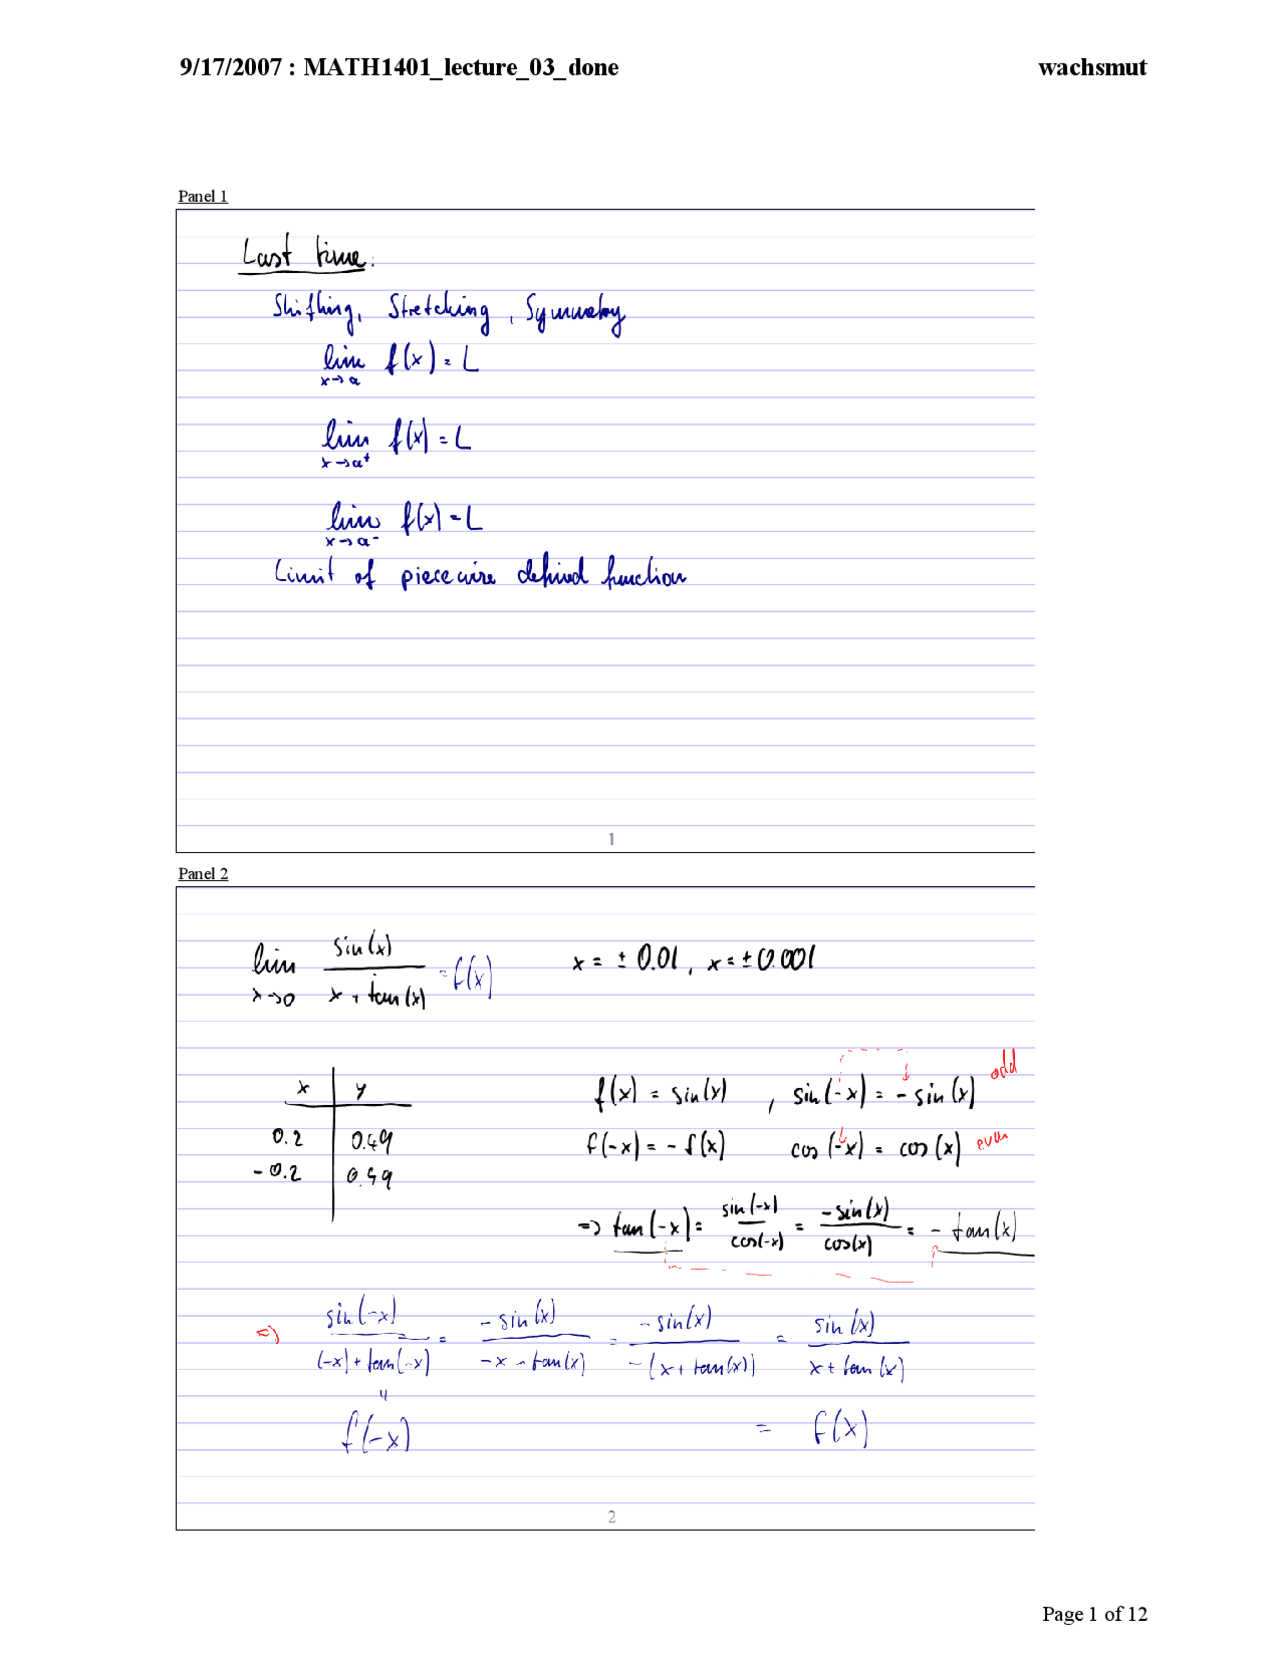 9/17/2007 : MATH1401_lecture_03_done wachsmut
Panel 1
Last time:
Shifting, Stretching, Symmetry
lim f(x) = L
x→a
lim f(x) = L
x→a⁺
lim f(x) = L
x→a⁻
Limit of piecewise defined function
1
Panel 2
lim sin(x) / x + tan(x) = f(x) x = ± 0.01, x = ± 0.001
x→0
x y
0.2 0.49
-0.2 0.49
f(x) = sin(x) , sin(-x) = - sin(x) odd
f(-x) = - f(x) cos(-x) = cos(x) even
=> tan(-x) = sin(-x) / cos(-x) = -sin(x) / cos(x) = - tan(x)
=> sin(-x) / (-x) + tan(-x) = - sin(x) / -x - tan(x) = - sin(x) / -(x + tan(x)) = sin(x) / x + tan(x)
"
f(-x) = f(x)
2
Page 1 of 12